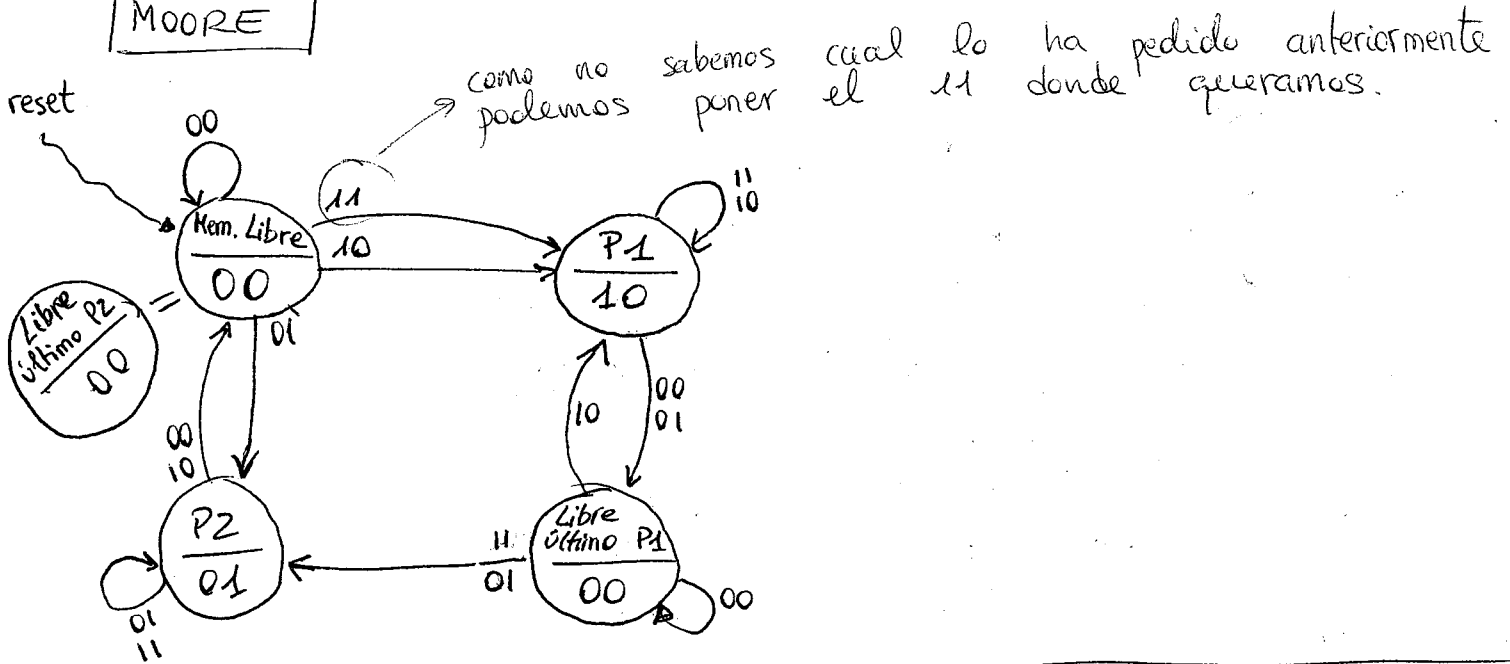 MOORE
como no sabemos cual lo ha pedido anteriormente
podemos poner el 11 donde queramos.
reset
00
11
10
Mem. Libre
00
01
P1
10
11
10
Libre
último P2
00
=
00
10
10
00
01
P2
01
01
11
11
01
Libre
último P1
00
00